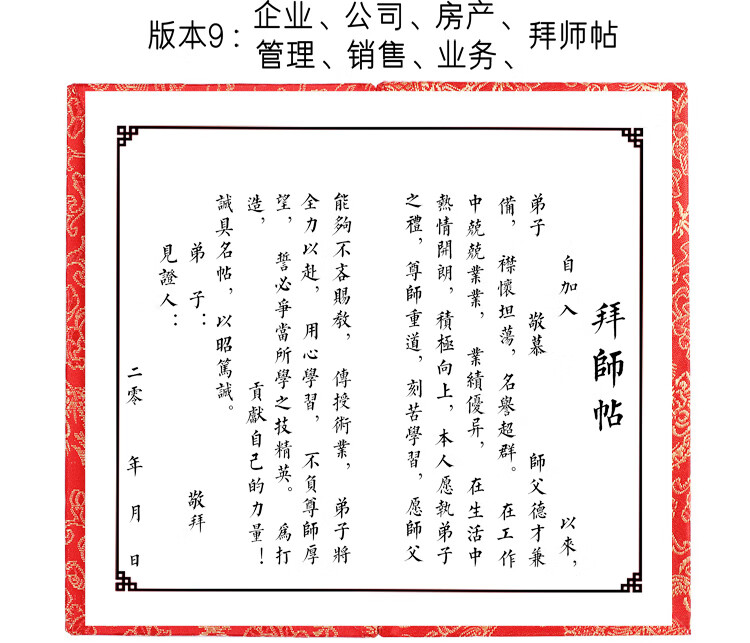 版本9：企业、公司、房产、管理、销售、业务、拜师帖
拜師帖
自加入 以來，
弟子 敬慕 師父德才兼
備，襟懷坦蕩，名譽超群。在工作
中兢兢業業，業績優异，在生活中
熱情開朗，積極向上，本人愿執弟子
之禮，尊師重道，刻苦學習，愿師父
能夠不吝賜教，傳授術業，弟子將
全力以赴，用心學習，不負尊師厚
望，誓必爭當所學之技精英。爲打
造， 貢獻自己的力量！
誠具名帖，以昭篤誠。
弟子： 敬拜
見證人：
二零 年 月 日